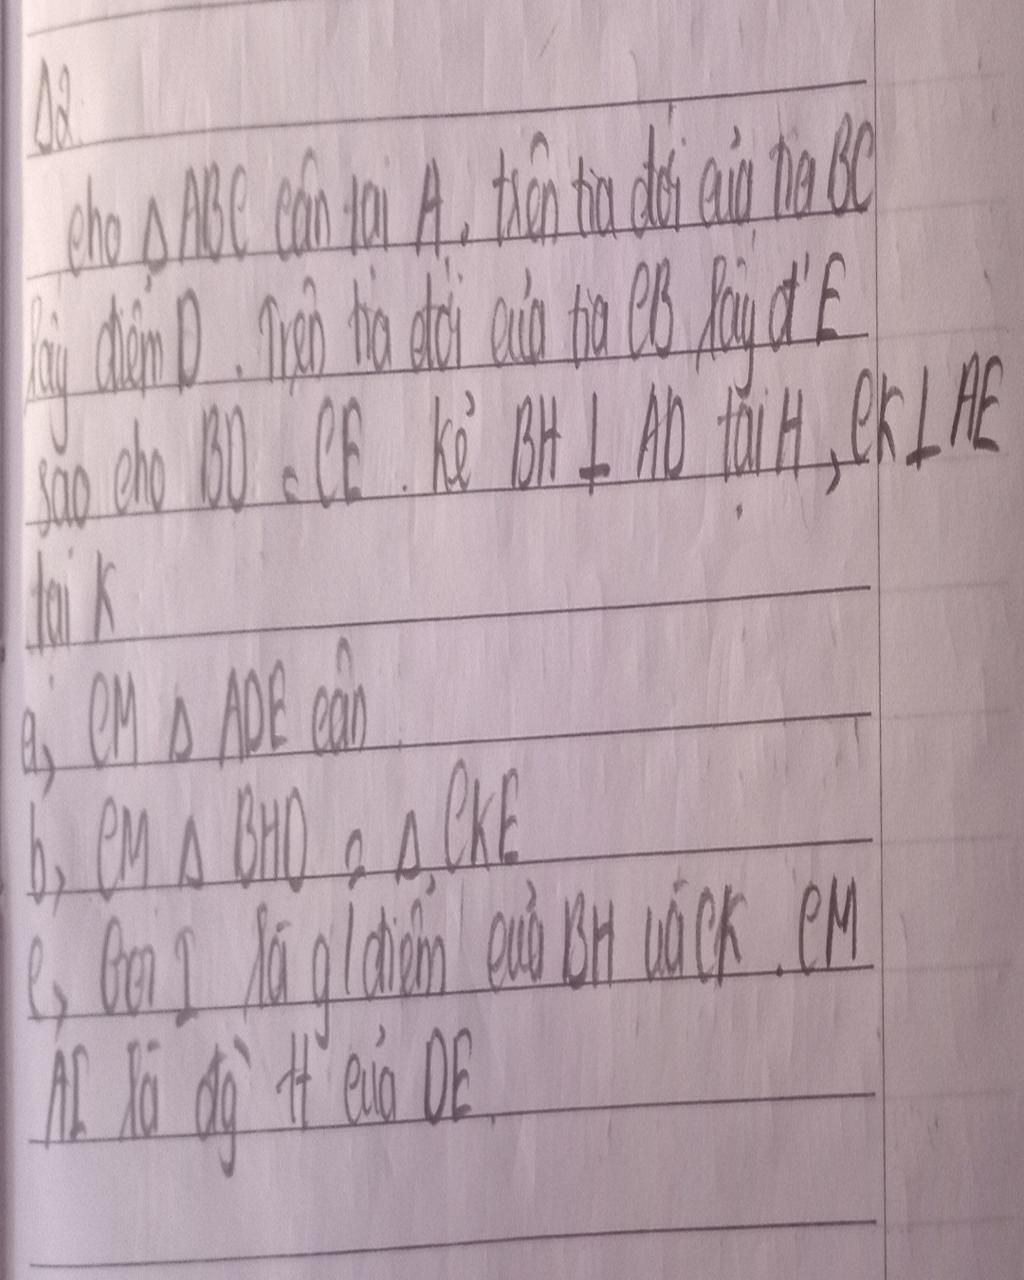 Δ2.
cho Δ ABC cân tại A. trên tia đối của tia BC
lấy điểm D. Trên tia đối của tia CB lấy đ' E
sao cho BD = CE. Kẻ BH ⊥ AD tại H, CK ⊥ AE
tại K
a, CM Δ ADE cân
b, CM Δ BHD = Δ CKE
c, Gọi I là g/điểm của BH và CK. CM
AI là đg` tt của DE.